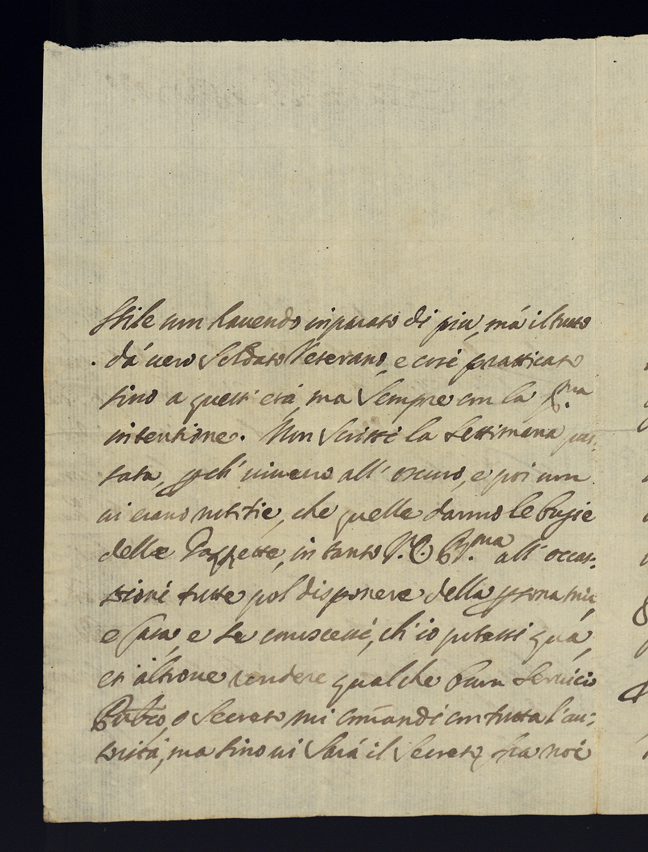 stile non havendo inparato di piu, má il tutto
dá vero Soldato Veterano, e cosi pratticato
sino a questi etá, ma Sempre con la p.ma
intentione. Non Scrissi la Settimana pas:
sata, p.ch'vivevo all'oscuro, e poi non
vi erano notitie, che quelle danno le bugie
delle Gazzette, in tanto V. E. R.ma all'occas:
sioni tutte pol disponere della persona mia,
e Casa e se conoscessi, ch'io potessi quá
et altrove rendere qualche buon Servicio
Publico o Secreto mi comandi con tutta l'au:
toritá, ma sino vi Sará il Secreto fra noi